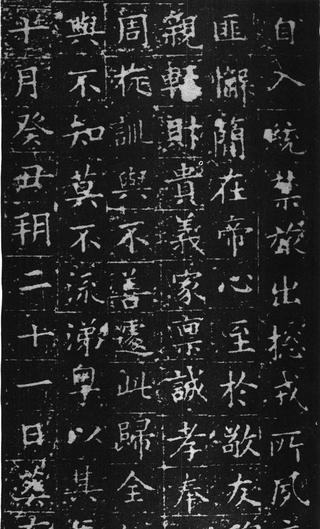 自入統禁旅出摠戎所夙
匪懈簡在帝心至於敬友
親輕財貴義家禀誠孝奉
周旋訓與不善遽此歸全
與不知莫不流涕粤以其
十月癸丑朔二十一日癸